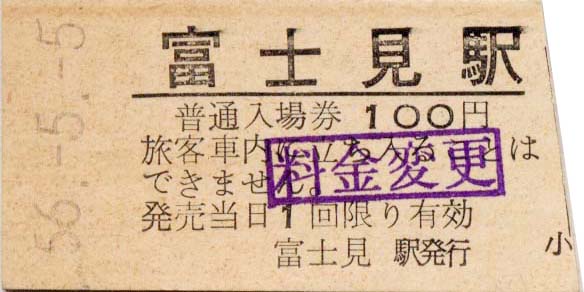 56.-5.-5
富士見駅
普通入場券 100円
旅客車内に立ち入ることは
できません。
料金変更
発売当日1回限り有効
富士見 駅発行
小